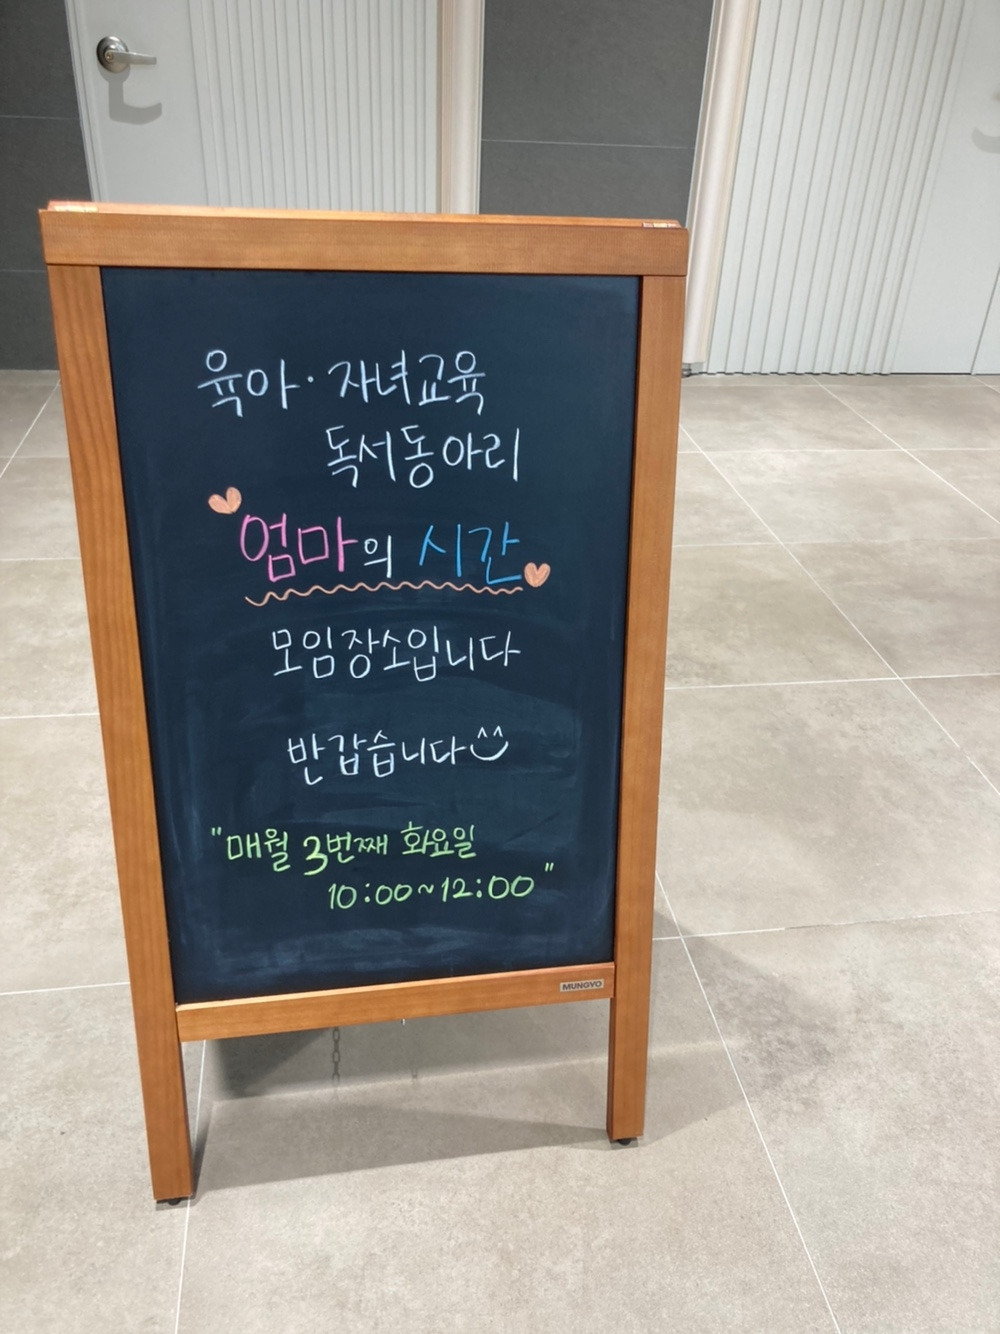 육아·자녀교육
독서동아리
엄마의 시간
모임장소입니다
반갑습니다^^
"매월 3번째 화요일
10:00~12:00"
MUNGYO